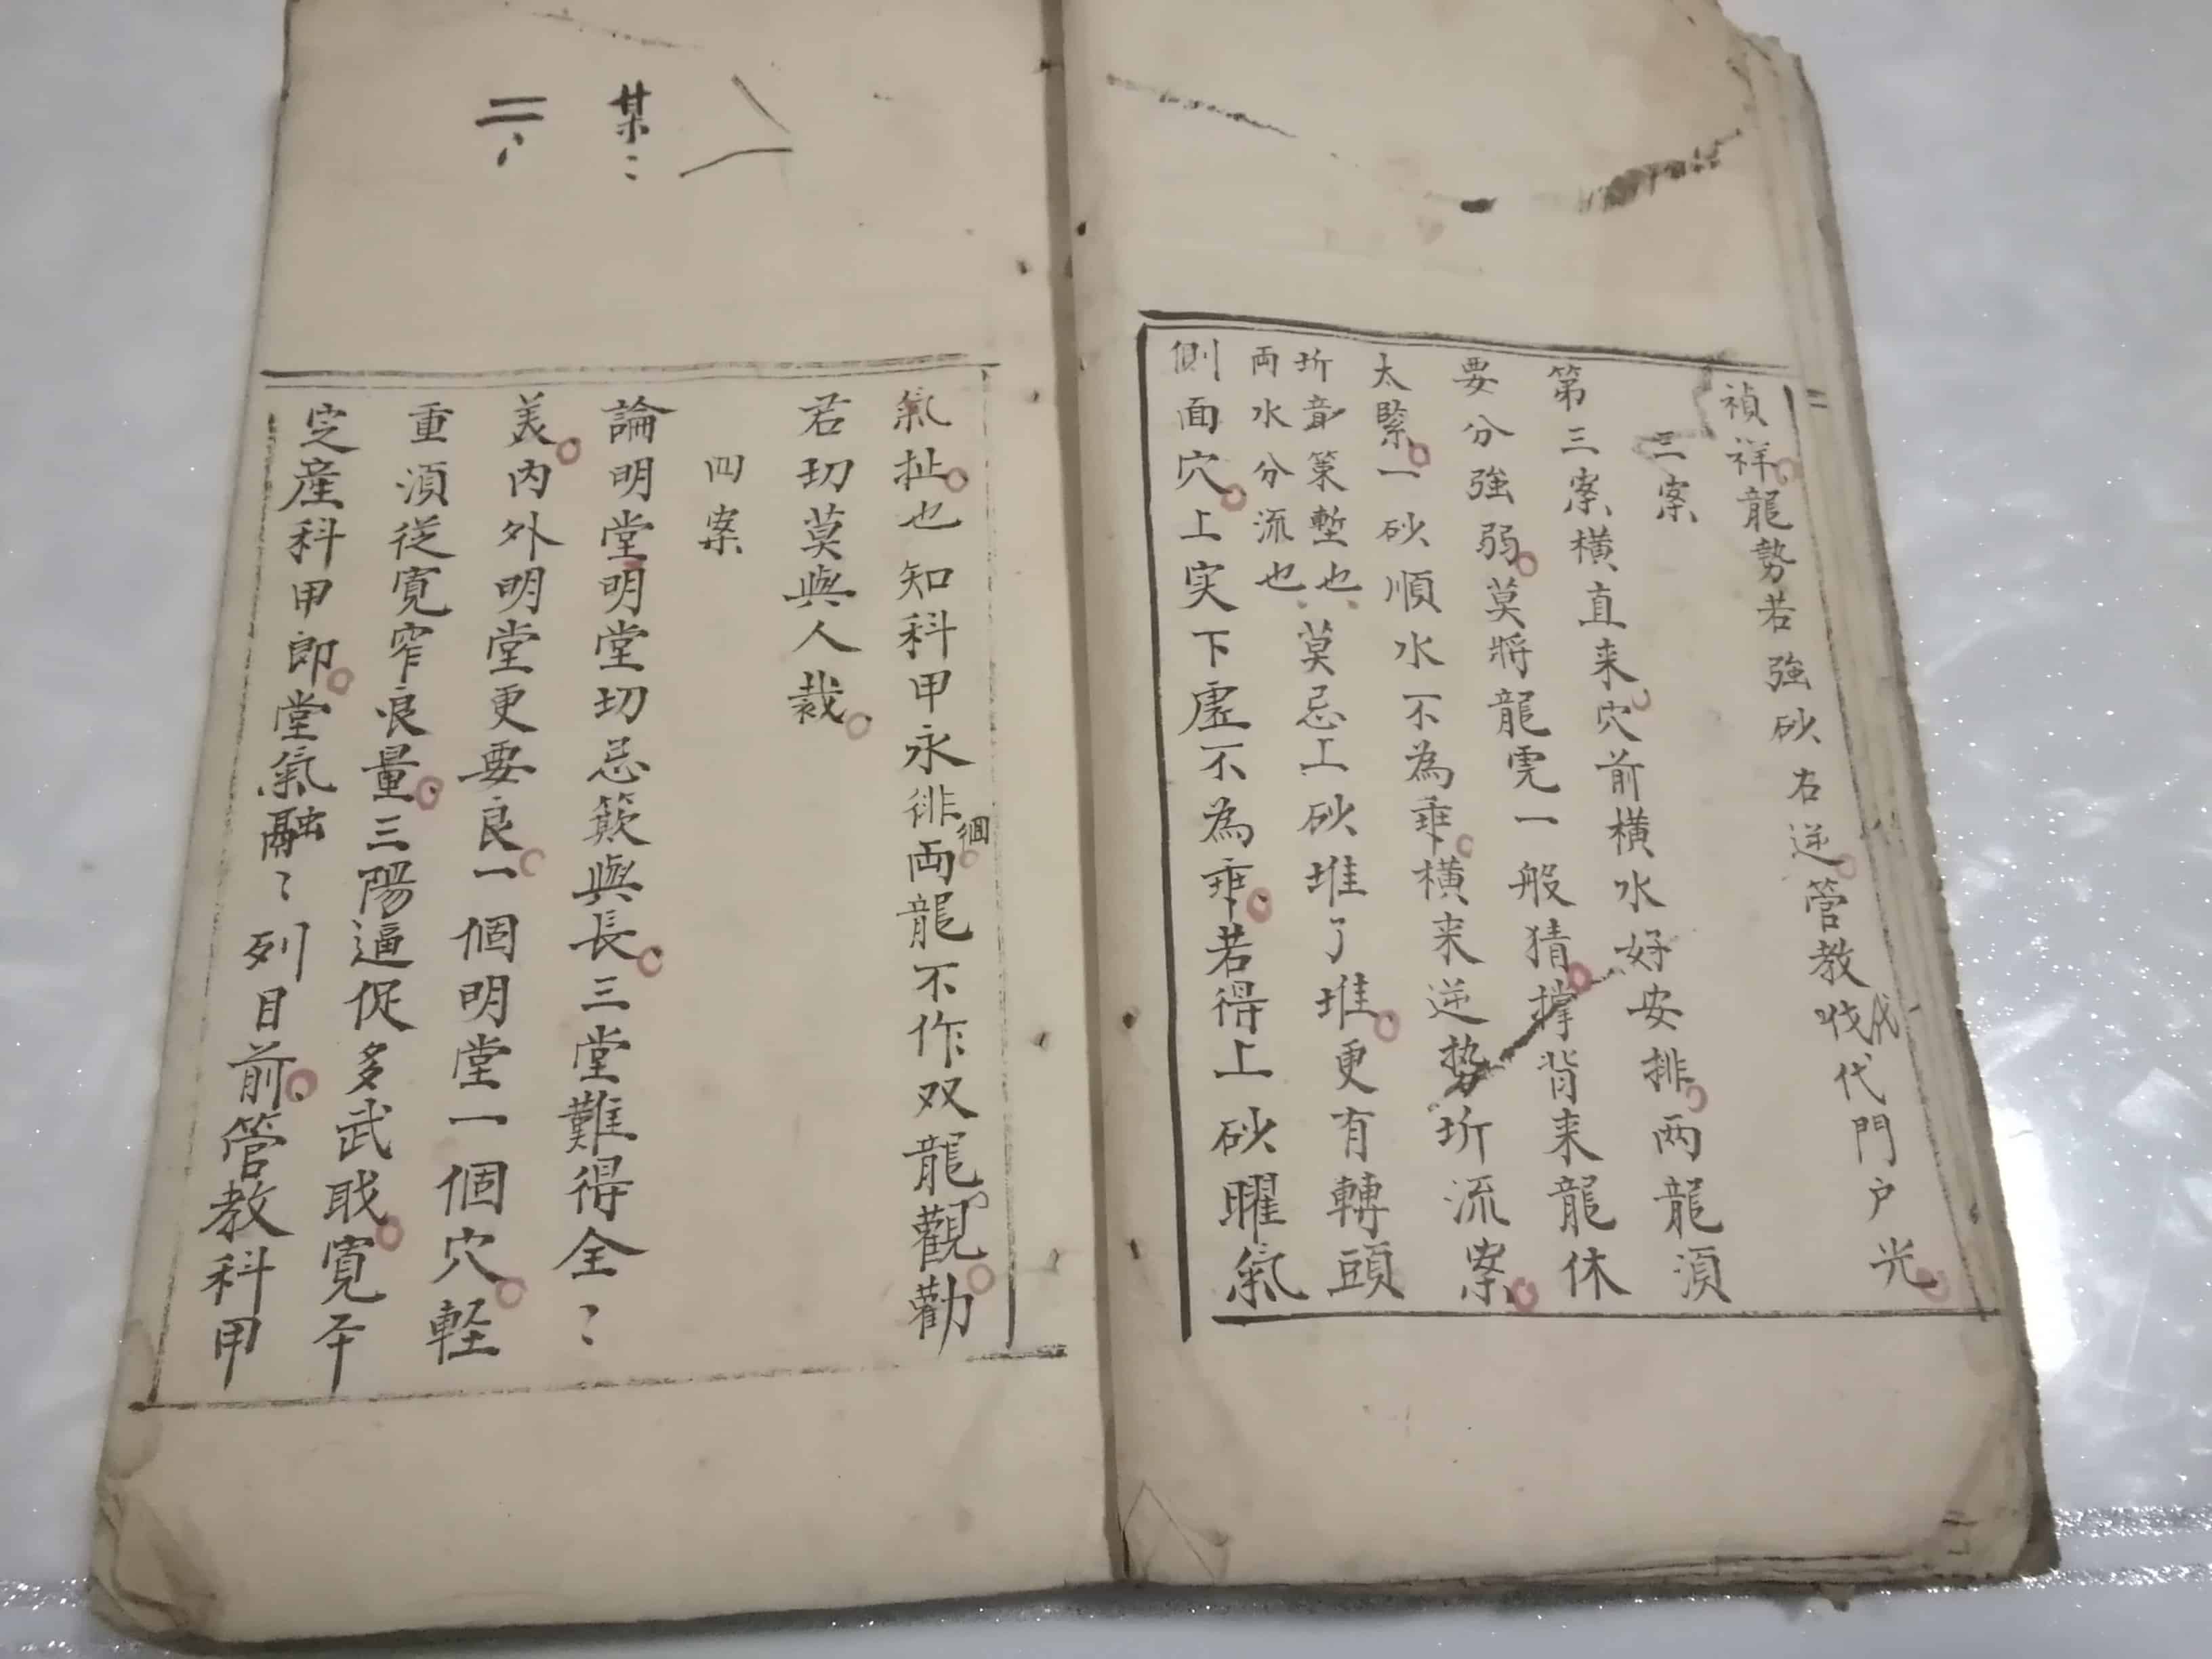 禎祥龍勢若強砂右逆管教戗代門户光
三案
第三案橫直来穴前橫水好安排两龍湏
要分強弱莫將龍虎一般猜撑背来龍休
太緊一砂順水不為乖橫来逆势圻流案
圻音策塹也
両水分流也
莫忌上砂堆了堆更有轉頭
側面穴上实下虛不為乖若得上砂曜氣
氣扯也知科甲永徘徊両龍不作双龍觀勸
若切莫與人裁
四案
論明堂明堂切忌簸與長三堂難得全〻
美内外明堂更要良一個明堂一個穴軽
重湏従寛窄浪量三陽逼促多武戝寛平
定産科甲郎堂氣融〻列目前管教科甲
某〻